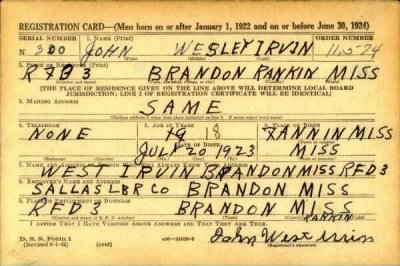 REGISTRATION CARD—(Men born on or after January 1, 1922 and on or before June 30, 1924)
SERIAL NUMBER 1. NAME (Print) ORDER NUMBER
N 300 JOHN WESLEY IRVIN
(First) (Middle) (Last)
2. PLACE OF RESIDENCE (Print)
BRANDON RANKIN MISS
[THE PLACE OF RESIDENCE GIVEN ON THE LINE ABOVE WILL DETERMINE LOCAL BOARD
JURISDICTION; LINE 2 OF REGISTRATION CERTIFICATE WILL BE IDENTICAL]
3. MAILING ADDRESS
SAME
4. TELEPHONE 5. AGE IN YEARS 6. PLACE OF BIRTH
NONE 19 18 MISS
DATE OF BIRTH
JULY 20 1923 MISS
7. NAME AND ADDRESS OF PERSON WHO WILL ALWAYS KNOW YOUR ADDRESS
WEST IRVIN BRANDON MISS RED 3
8. EMPLOYER'S NAME AND ADDRESS
SALLAS LBR CO BRANDON MISS
9. PLACE OF EMPLOYMENT OR BUSINESS
RED 3 BRANDON MISS
RANKIN
I AFFIRM THAT I HAVE VERIFIED ABOVE ANSWERS AND THAT THEY ARE TRUE.
D. S. S. Form 1
John West Irvin
(Registrant's signature)